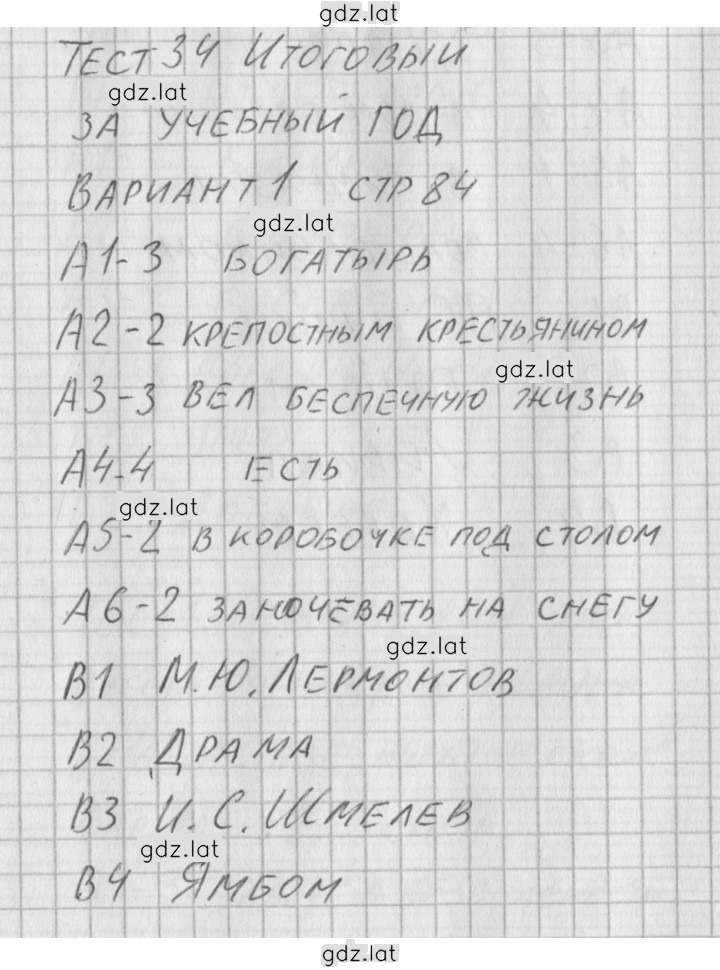 gdz.lat
ТЕСТ 34 ИТОГОВЫЙ
gdz.lat
ЗА УЧЕБНЫЙ ГОД
ВАРИАНТ 1 СТР 84
gdz.lat
А1-3 БОГАТЫРЬ
А2-2 КРЕПОСТНЫМ КРЕСТЬЯНИНОМ
gdz.lat
А3-3 ВЕЛ БЕСПЕЧНУЮ ЖИЗНЬ
А4-4 ЕСТЬ
gdz.lat
А5-2 В КОРОБОЧКЕ ПОД СТОЛОМ
А6-2 ЗАНОЧЕВАТЬ НА СНЕГУ
gdz.lat
В1 М.Ю. ЛЕРМОНТОВ
В2 ДРАМА
В3 И.С. ШМЕЛЕВ
gdz.lat
В4 ЯМБОМ
gdz.lat